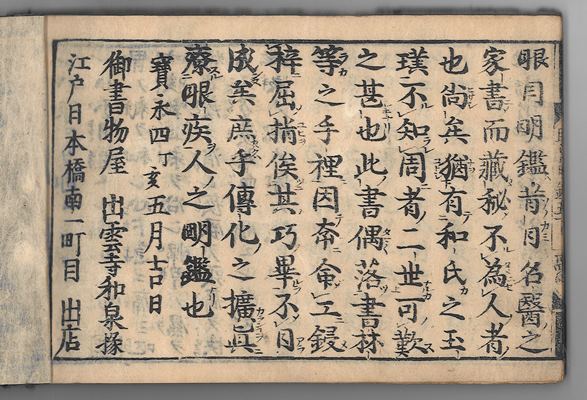 眼目明鑑昔有名醫之
家書而藏秘不為人者
也尚矣猶有和氏之玉
璞不知周者二世可歎
之甚也此書偶落書林
等之手裡因奉命工鋟
梓屈指俟其巧畢不日
成矣庶乎傳化之擴眞
療眼疾人之明鑑也
寶永四丁亥五月吉日
御書物屋 出雲寺和泉掾
江戸日本橋南一町目 出店